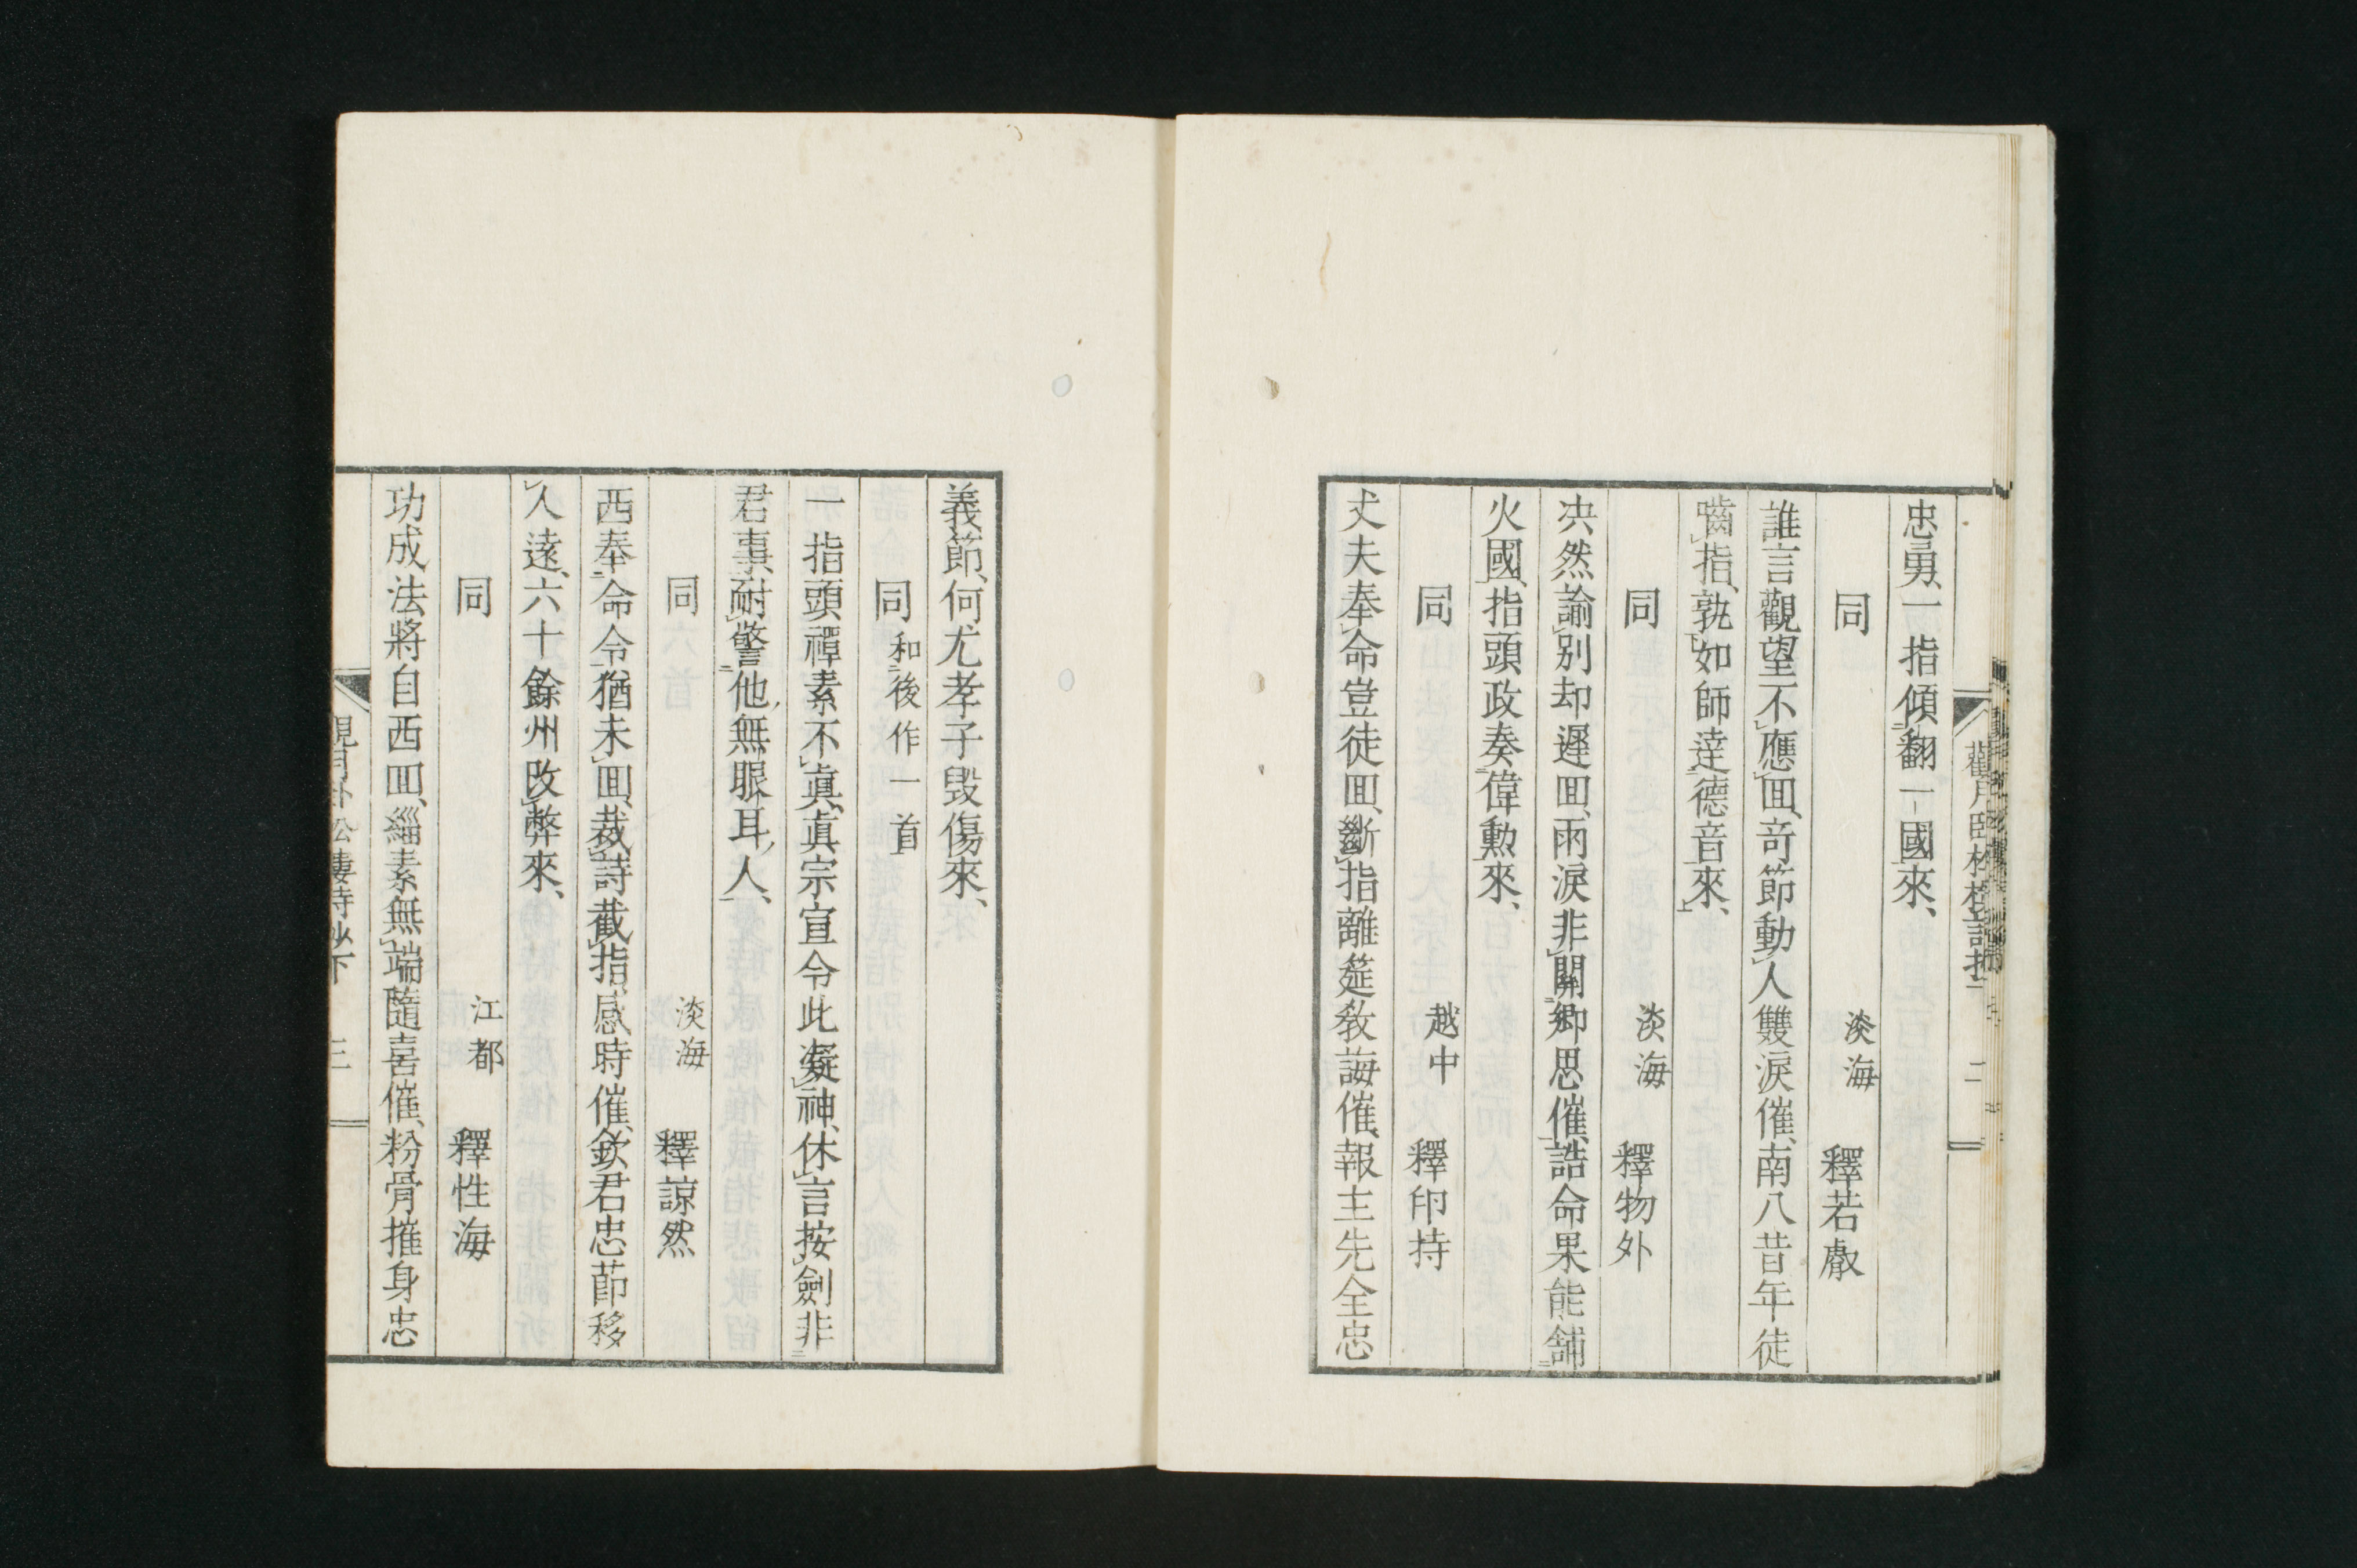 忠勇、一指傾翻一國來、
同 淡海 釋若厳
誰言觀望不應囬、竒節動人雙淚催、南八昔年徒
嚙指、孰如師逹德音來、
同 淡海 釋物外
决然諭別却遲囬、雨淚非關鄉思催、誥命果能舖
火國、指頭政奏偉勲來、
同 越中 釋印持
丈夫奉命豈徒囬、斷指離筵敎誨催、報主先全忠
義節、何尤孝子毀傷來、
同 和後作一首
一指頭禪素不眞、眞宗宣令此凝神、休言按劍非
君事、耐警他無眼耳人、
同 淡海 釋諒然
西奉命令猶未囬、裁詩截指感時催、欽君忠節移
人遠、六十餘州改弊來、
同 江都 釋性海
功成法將自西囬、緇素無端隨喜催、粉骨摧身忠